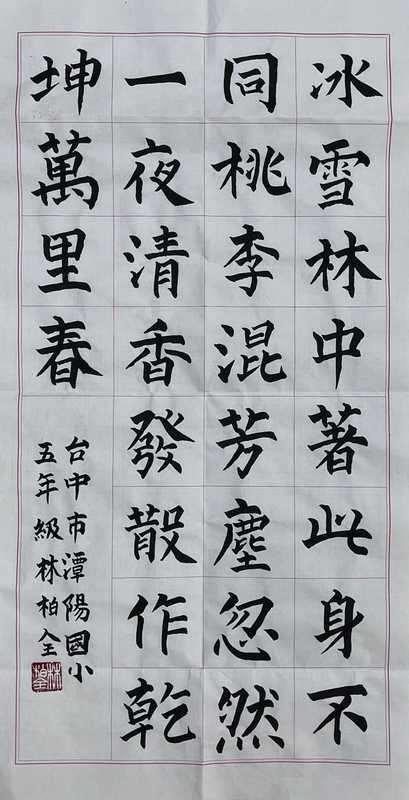 冰雪林中著此身不
同桃李混芳塵忽然
一夜清香發散作乾
坤萬里春
台中市潭陽國小
五年級林柏全